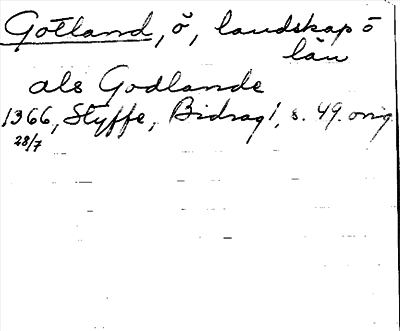 Gotland, ö, landskap o
län
als Godlande
1366, Styffe, Bidrag 1, s. 49. orig
28/7